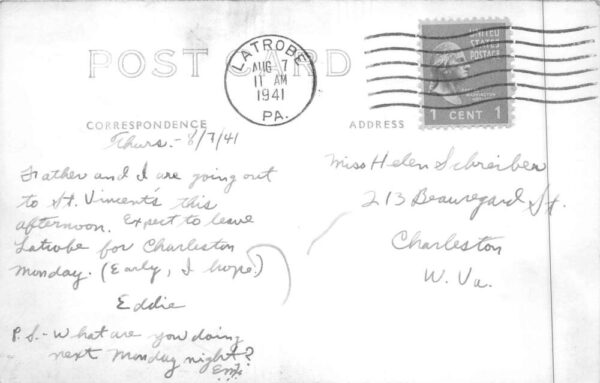 POST CARD
LATROBE
AUG 7
11 AM
1941
PA.
UNITED
STATES
POSTAGE
WASHINGTON
1 CENT 1
CORRESPONDENCE
ADDRESS
Thurs. - 8/7/41
Father and I are going out
to St. Vincent's this
afternoon. Expect to leave
Latrobe for Charleston
Monday. (Early, I hope.)
Eddie
P.S. - What are you doing
next Monday night?
Miss Helen Schreiber
213 Beauregard St.
Charleston
W. Va.